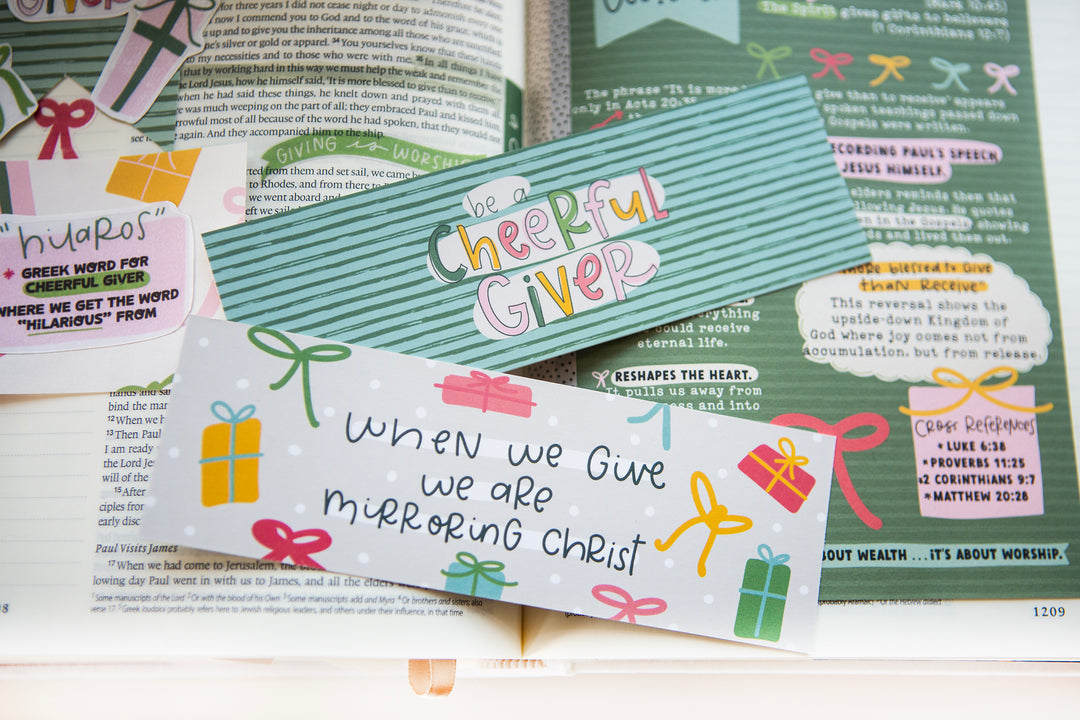 for three years I did not cease night or day to admonish every one
now I commend you to God and to the word of his grace, which is
up and to give you the inheritance among all those who are sanctified
one's silver or gold or apparel. 34 You yourselves know that these hands
to my necessities and to those who were with me. 35 In all things I have
that by working hard in this way we must help the weak and remember the
Lord Jesus, how he himself said, 'It is more blessed to give than to receive.'
when he had said these things, he knelt down and prayed with them all.
was much weeping on the part of all; they embraced Paul and kissed him,
rowful most of all because of the word he had spoken, that they would not
again. And they accompanied him to the ship.
GIVING is WORSHIP
from them and set sail, we came
to Rhodes, and from there to
we went aboard and
set sail
"hilaros"
* GREEK WORD FOR
CHEERFUL GIVER
WHERE WE GET THE WORD
"HILARIOUS" FROM
be a
Cheerful
Giver
when we give
we are
mirroring Christ
hands and
bind the
12 When we
13 Then Paul
I am ready
the Lord
will of the
15 After
ciples from
early
Paul Visits James
17 When we had come to Jerusalem, the
lowing day Paul went in with us to James, and all the elders were
1 Some manuscripts add and Myra 4 Or brothers and sisters; also
verse 17 5 Greek Ioudaioi probably refers here to Jewish religious leaders, and others under their influence, in that time
The Spirit gives gifts to believers
(1 Corinthians 12:7)
The phrase "It is more
only in Acts 20:35
give than to receive" appears
spoken teachings passed down
Gospels were written.
RECORDING PAUL'S SPEECH
JESUS HIMSELF.
elders reminds them that
following Jesus. He quotes
in the Gospels showing
and lived them out.
"more blessed to Give
than Receive"
This reversal shows the
upside-down Kingdom of
God where joy comes not from
accumulation, but from release.
everything
could receive
eternal life.
RESHAPES THE HEART.
It pulls us away from
and into
Cross References
* LUKE 6:38
* PROVERBS 11:25
* 2 CORINTHIANS 9:7
* MATTHEW 20:28
ABOUT WEALTH ...IT'S ABOUT WORSHIP.
1209